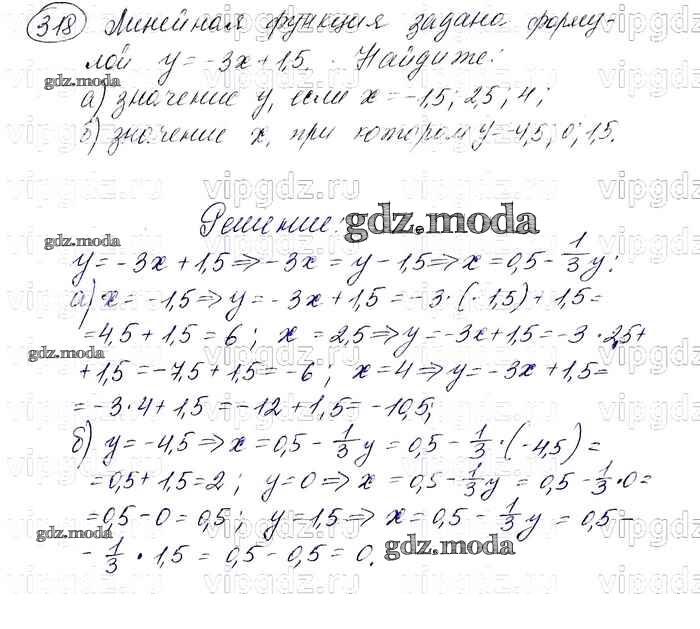 318 Линейная функция задана форму-
лой y = -3x + 1,5. Найдите:
gdz.moda
а) значение y, если x = -1,5; 2,5; 4;
gdz.moda
б) значение x, при котором y = -4,5; 0; 1,5.
vipgdz.ru vipgdz.ru vipgdz.ru
Решение:
gdz.moda
gdz.moda
y = -3x + 1,5 ⇒ -3x = y - 1,5 ⇒ x = 0,5 - 1/3 y;
а) x = -1,5 ⇒ y = -3x + 1,5 = -3 · (-1,5) + 1,5 =
= 4,5 + 1,5 = 6; x = 2,5 ⇒ y = -3x + 1,5 = -3 · 2,5 +
gdz.moda
+ 1,5 = -7,5 + 1,5 = -6; x = 4 ⇒ y = -3x + 1,5 =
= -3 · 4 + 1,5 = -12 + 1,5 = -10,5;
б) y = -4,5 ⇒ x = 0,5 - 1/3 y = 0,5 - 1/3 · (-4,5) =
= 0,5 + 1,5 = 2; y = 0 ⇒ x = 0,5 - 1/3 y = 0,5 - 1/3 · 0 =
= 0,5 - 0 = 0,5; y = 1,5 ⇒ x = 0,5 - 1/3 y = 0,5 -
gdz.moda
- 1/3 · 1,5 = 0,5 - 0,5 = 0.
gdz.moda